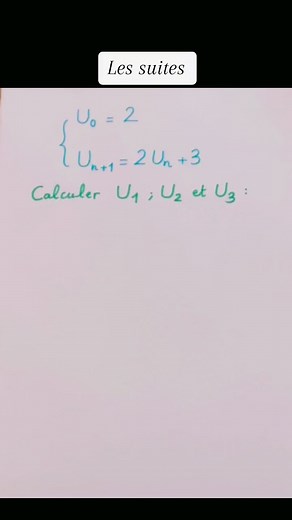 Les suites
U₀ = 2
Uₙ₊₁ = 2Uₙ + 3
Calculer U₁ ; U₂ et U₃ :